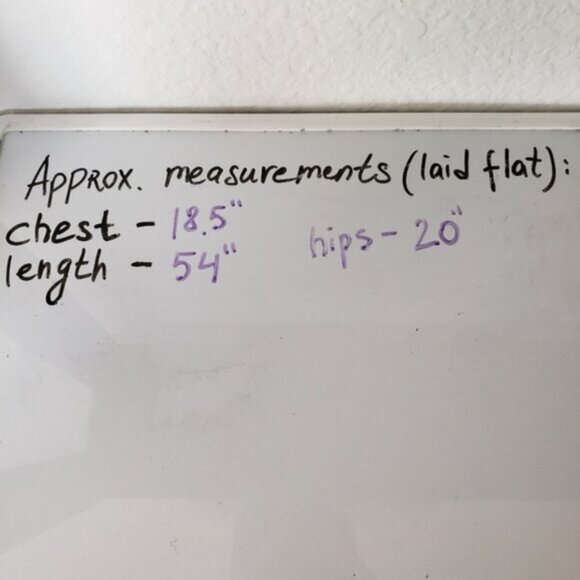 Approx. measurements (laid flat):
chest - 18.5"
hips - 20"
length - 54"